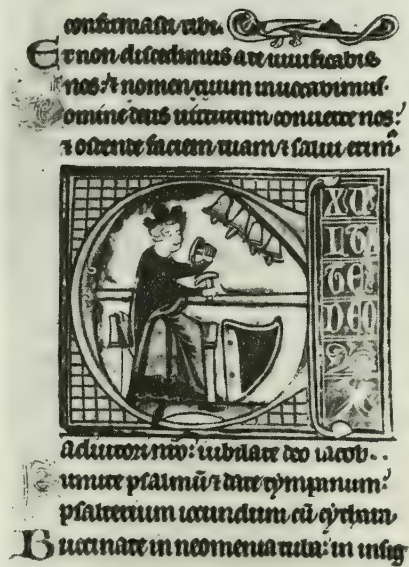 confirmasti tibi.
Et non discedimus a te uiuificabis
nos: ⁊ nomen tuum inuocabimus.
omine deus uirtutum conuerte nos:
⁊ ostende faciem tuam ⁊ salui erim᾽
EXU
LT
TE
DEO
adiutori nr̄o: iubilate deo iacob..
umite psalmū ⁊ date tympanum:
psalterium iucundum cū cythara
Buccinate in neomenia tuba: in insig